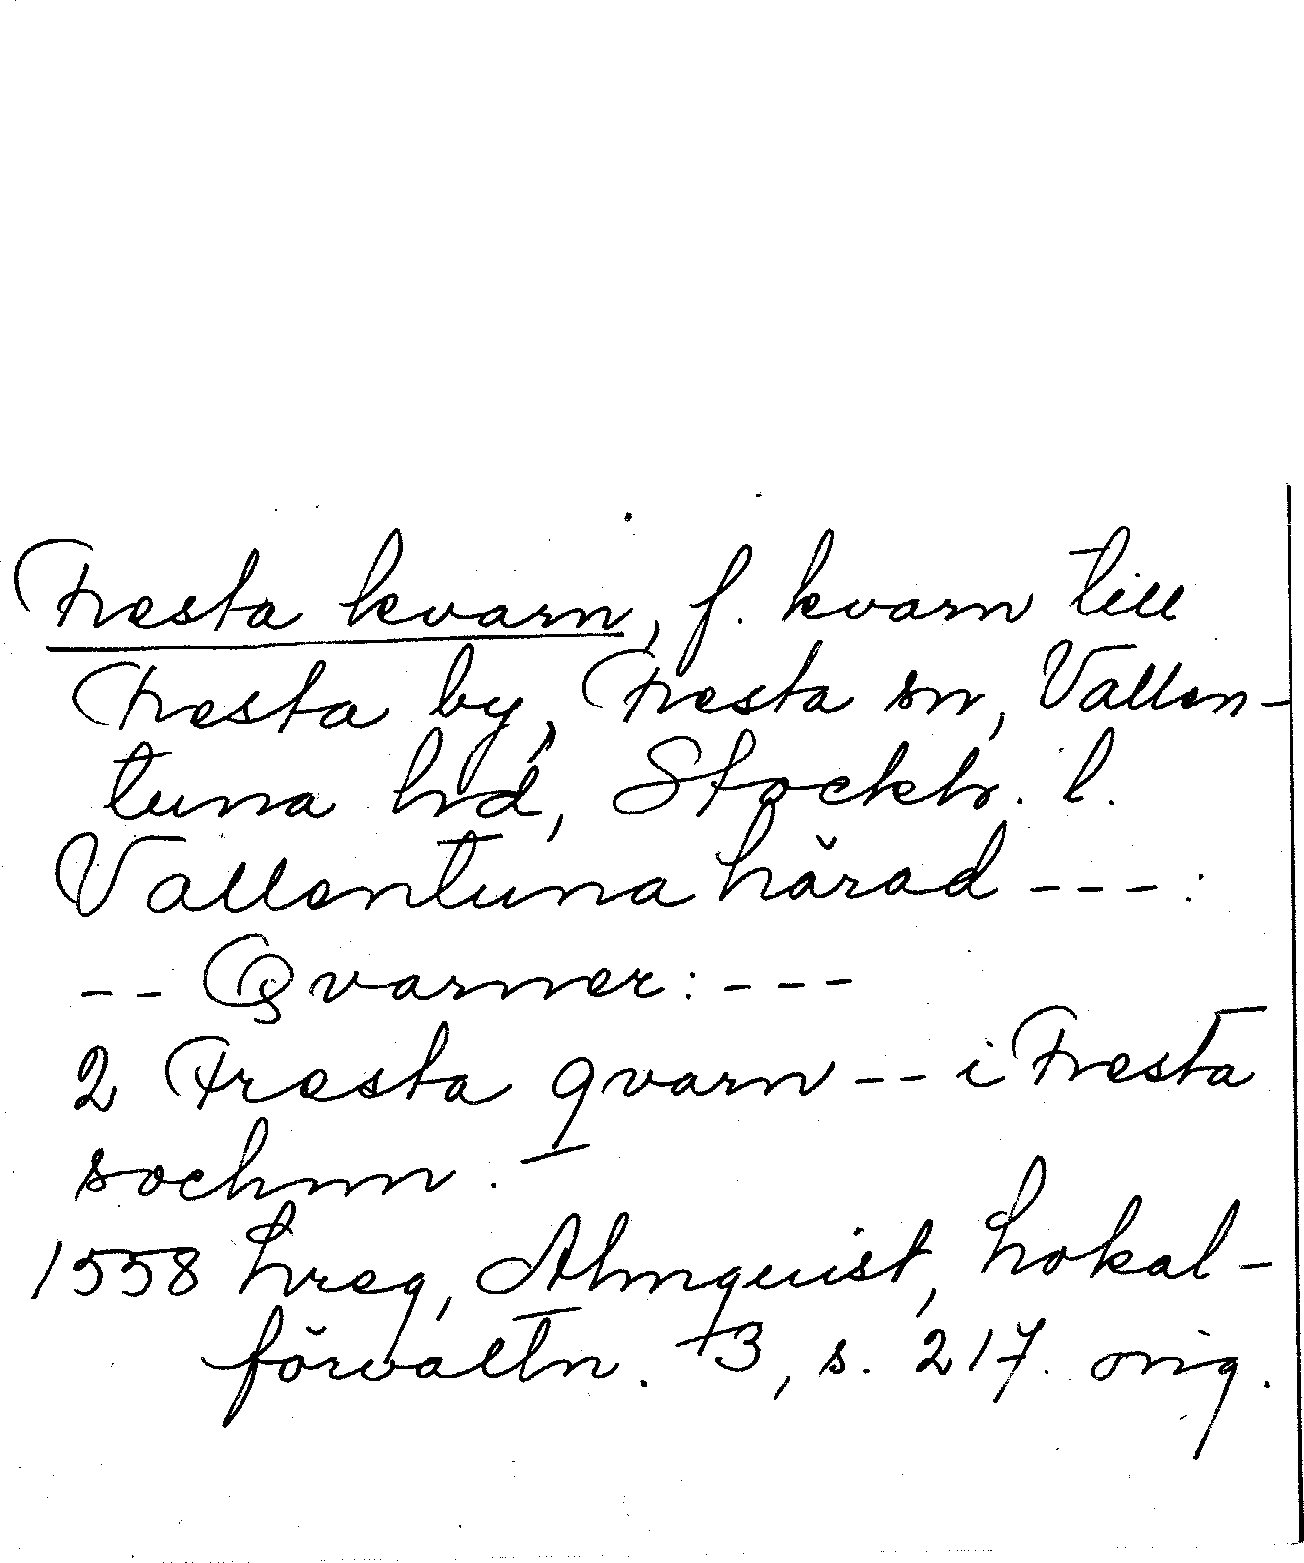 Fresta kvarn, f. kvarn till
Fresta by, Fresta sn, Vallen-
tuna hd, Stockh. l.
Vallentuna härad ---:
-- Qvarner: ---
2 Fresta qvarn -- i Fresta
sochnn.
1558 hreg, Almquist, Lokal-
förvaltn. +3, s. 217. orig.